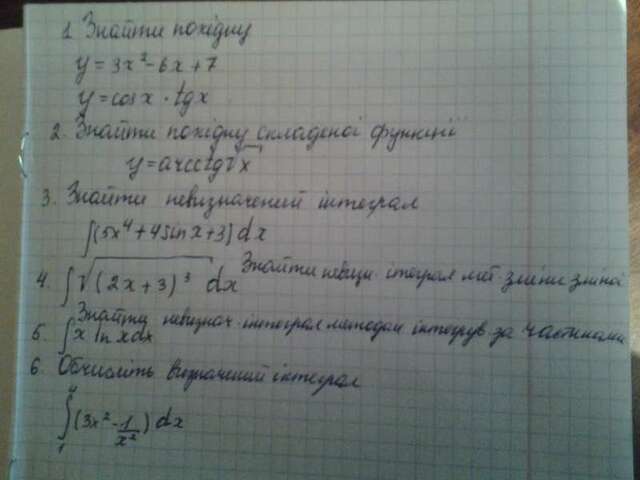 1 Знайти похідну
y = 3x² - 6x + 7
y = cosx · tgx
2. Знайти похідну складеної функції
y = arcctg√x
3. Знайти невизначений інтеграл
∫(5x⁴ + 4sinx + 3) dx
4. ∫√(2x + 3)³ dx Знайти невизн. інтеграл мет. зміни змінної
5. ∫x ln x dx Знайти невизнач. інтеграл методом інтегрув. за частинами
6. Обчисліть визначений інтеграл
∫₁⁴(3x² - 1/x²) dx